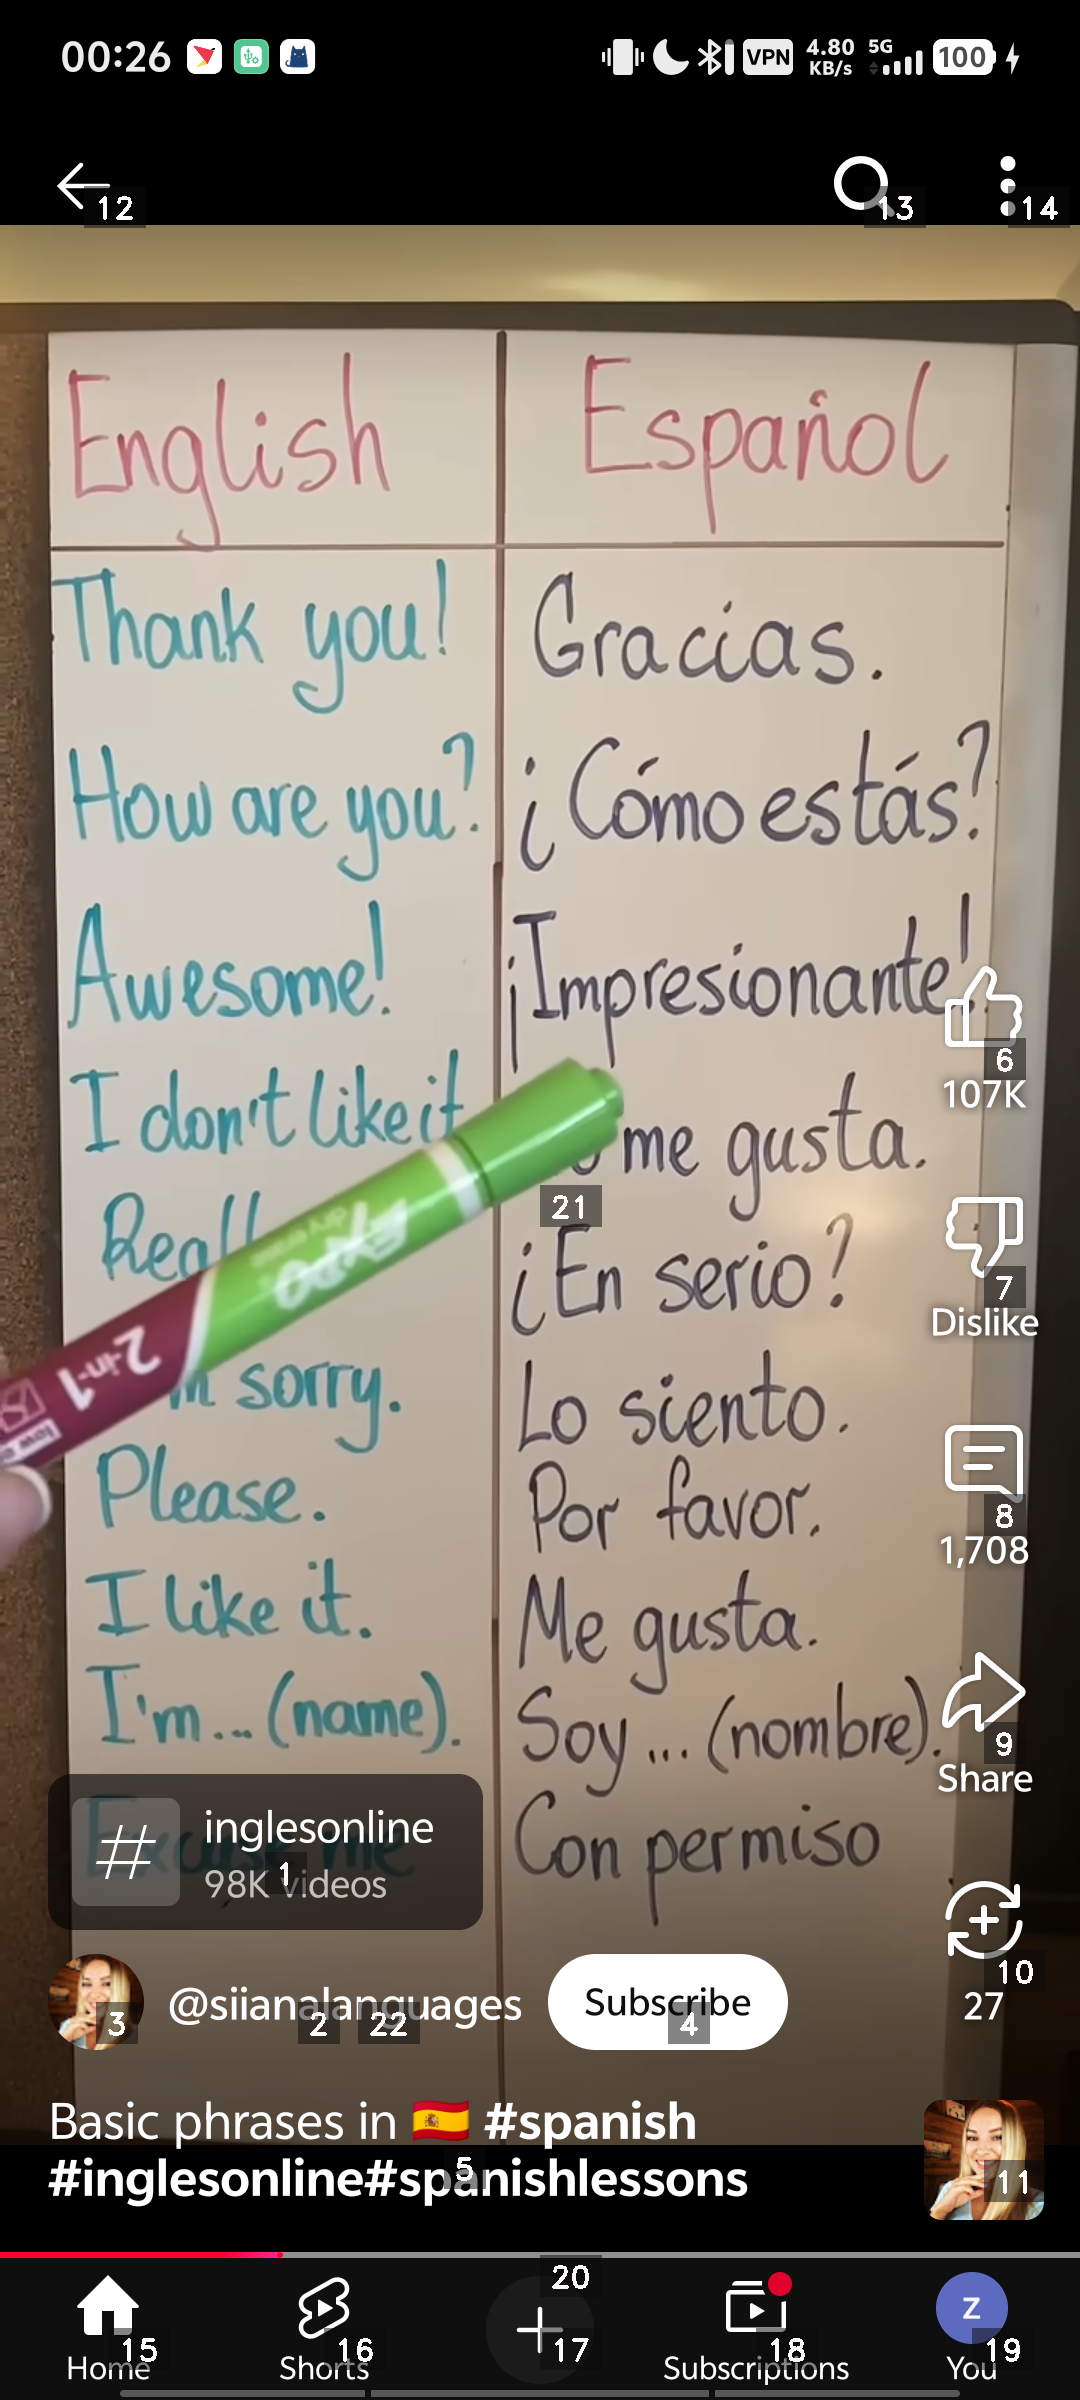 00:26
VPN
4.80 KB/s
5G
100
English
Español
Thank you!
Gracias.
How are you?
¿Cómo estás?
Awesome!
¡Impresionante!
I don't like it
me gusta.
¿En serio?
EXPO
2-in-1
sorry.
Lo siento.
Please.
Por favor.
I like it.
Me gusta.
I'm... (name).
Soy... (nombre).
Excuse me
Con permiso
12
13
14
6
107K
21
7
Dislike
8
1,708
9
Share
#
inglesonline
1
98K videos
10
27
3
@siianalanguages
2
22
Subscribe
4
Basic phrases in 🇪🇸 #spanish
#inglesonline#spanishlessons
5
11
20
Z
15
16
17
18
19
Home
Shorts
Subscriptions
You